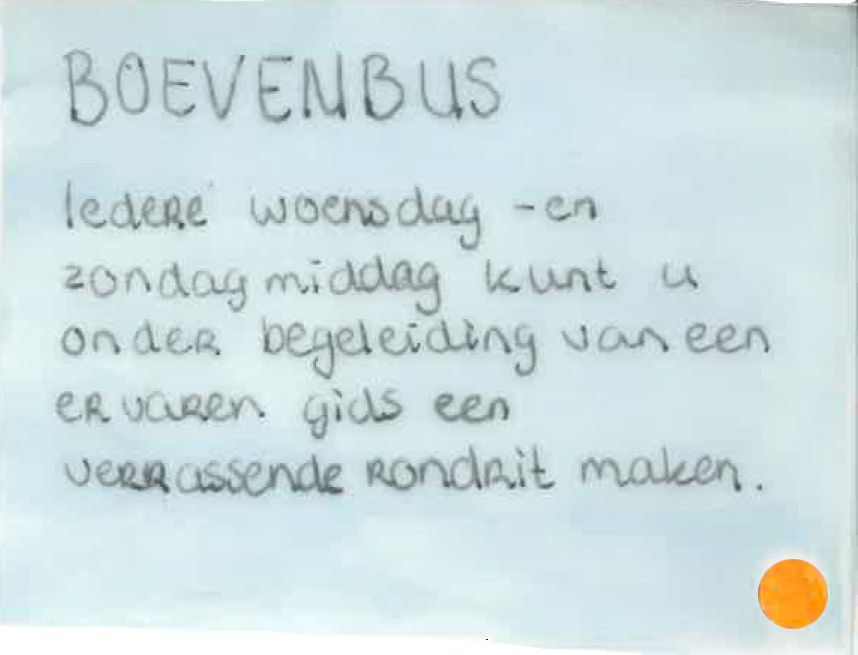 BOEVENBUS
Iedere woensdag -en
zondagmiddag kunt u
onder begeleiding van een
ervaren gids een
verrassende rondrit maken.